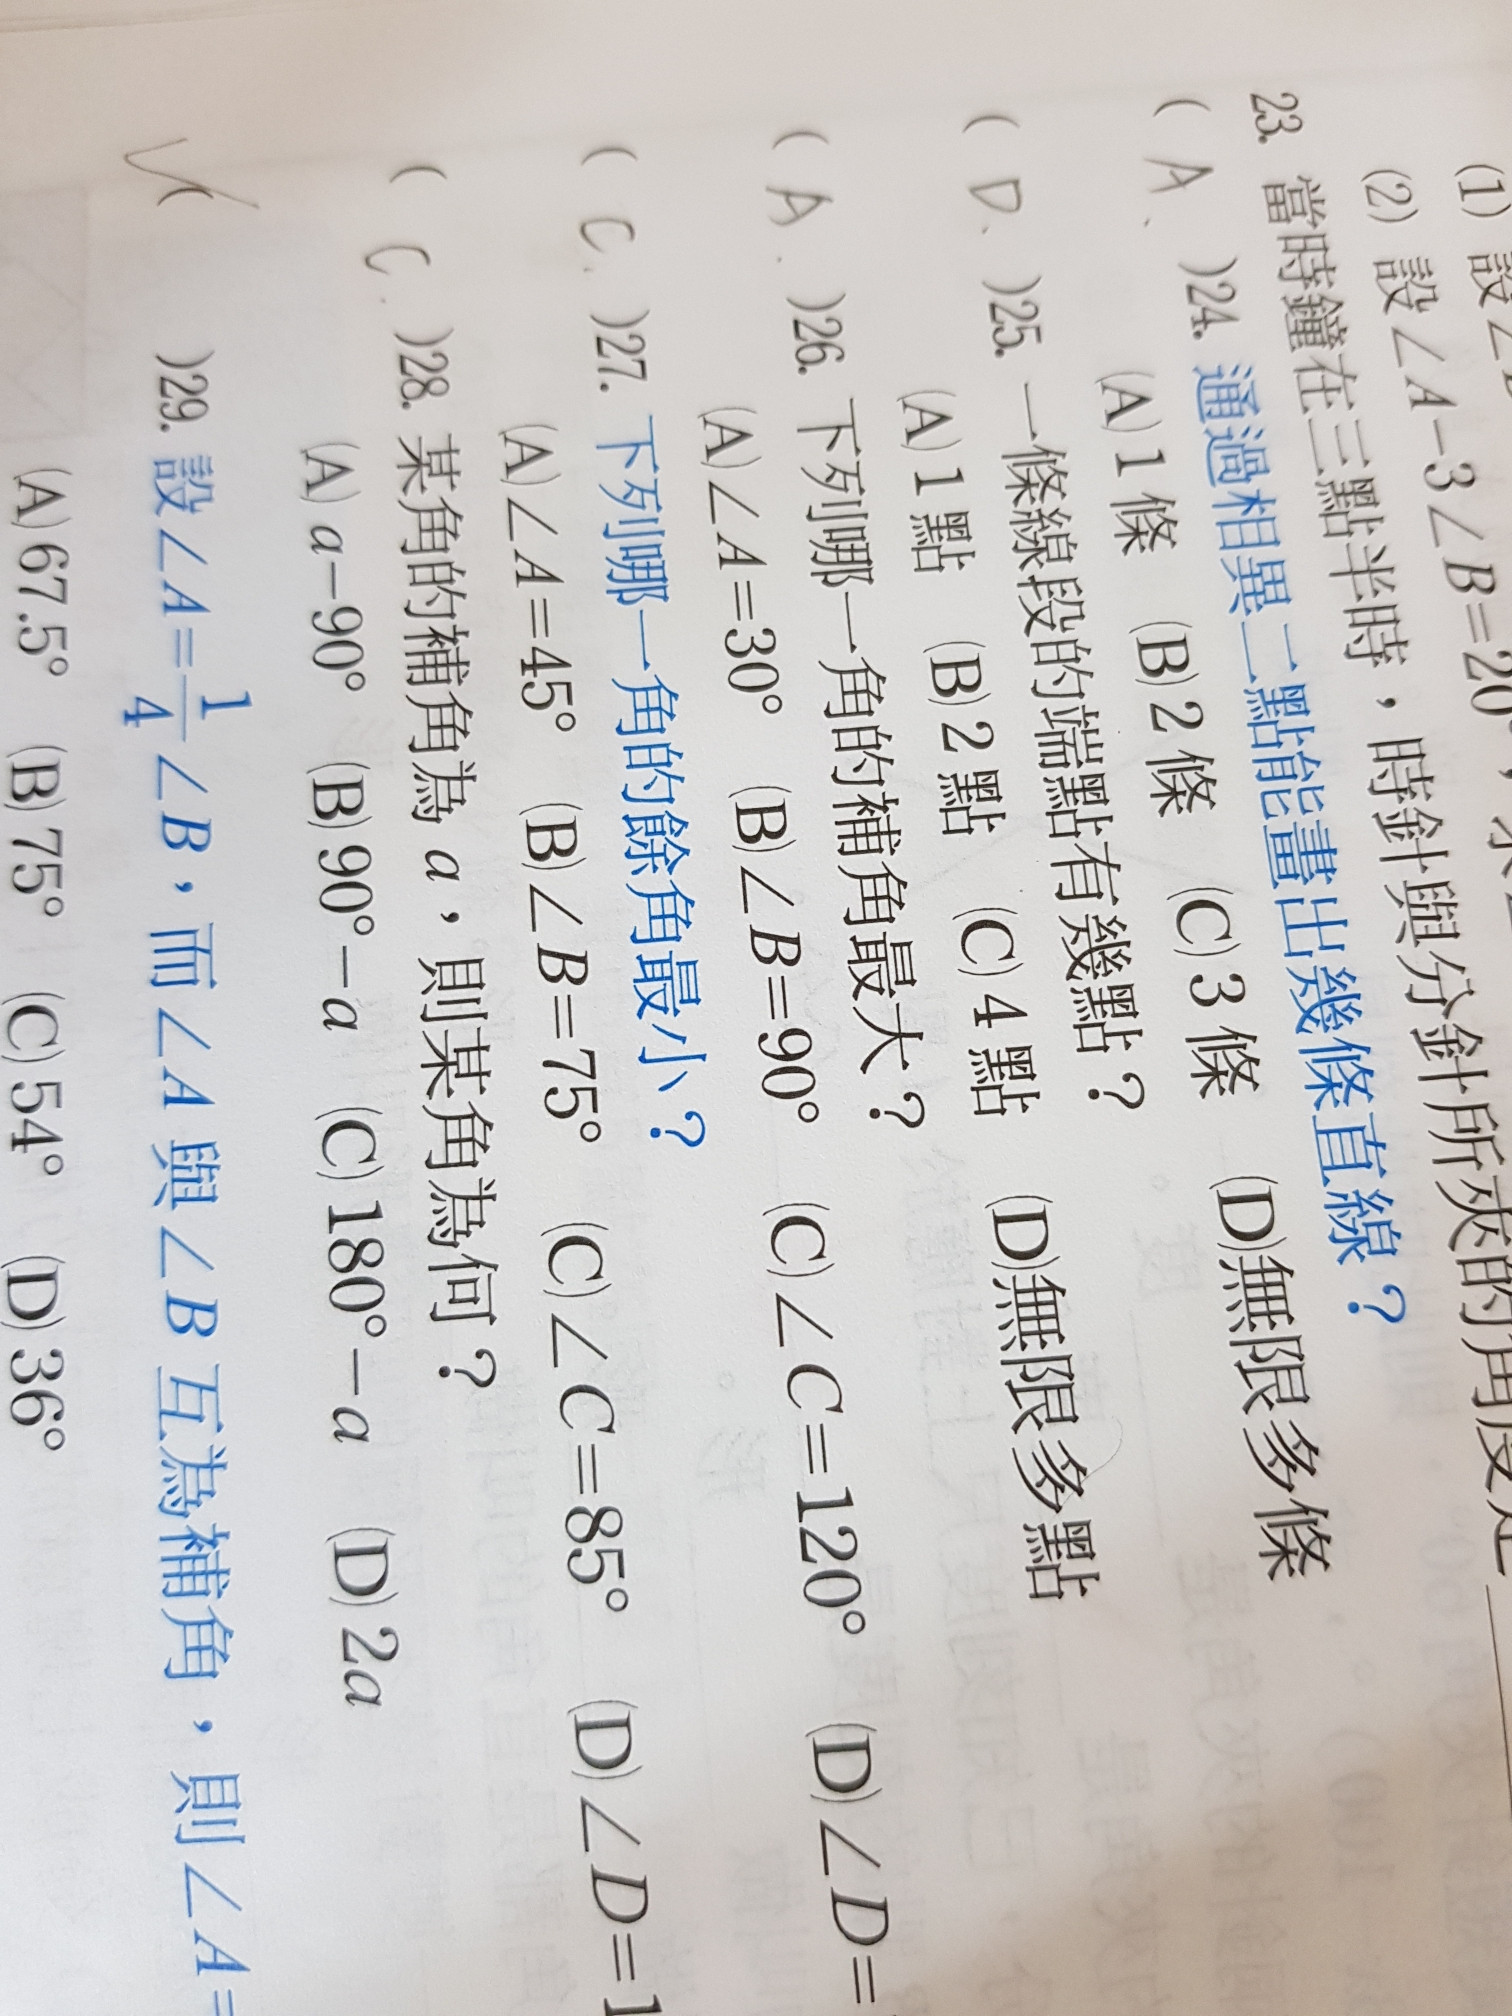 (2) 設∠A－3∠B＝20°，
23. 當時鐘在三點半時，時針與分針所夾的角度是
( A、 )24. 通過相異二點能畫出幾條直線？
(A) 1 條 (B) 2 條 (C) 3 條 (D)無限多條
( D、 )25. 一條線段的端點有幾點？
(A) 1 點 (B) 2 點 (C) 4 點 (D)無限多點
( A. )26. 下列哪一角的補角最大？
(A)∠A＝30° (B)∠B＝90° (C)∠C＝120° (D)∠D＝
( C. )27. 下列哪一角的餘角最小？
(A)∠A＝45° (B)∠B＝75° (C)∠C＝85° (D)∠D＝1
( C. )28. 某角的補角為 a，則某角為何？
(A) a－90° (B) 90°－a (C) 180°－a (D) 2a
✓( )29. 設∠A＝1/4∠B，而∠A 與∠B 互為補角，則∠A＝
(A) 67.5° (B) 75° (C) 54° (D) 36°